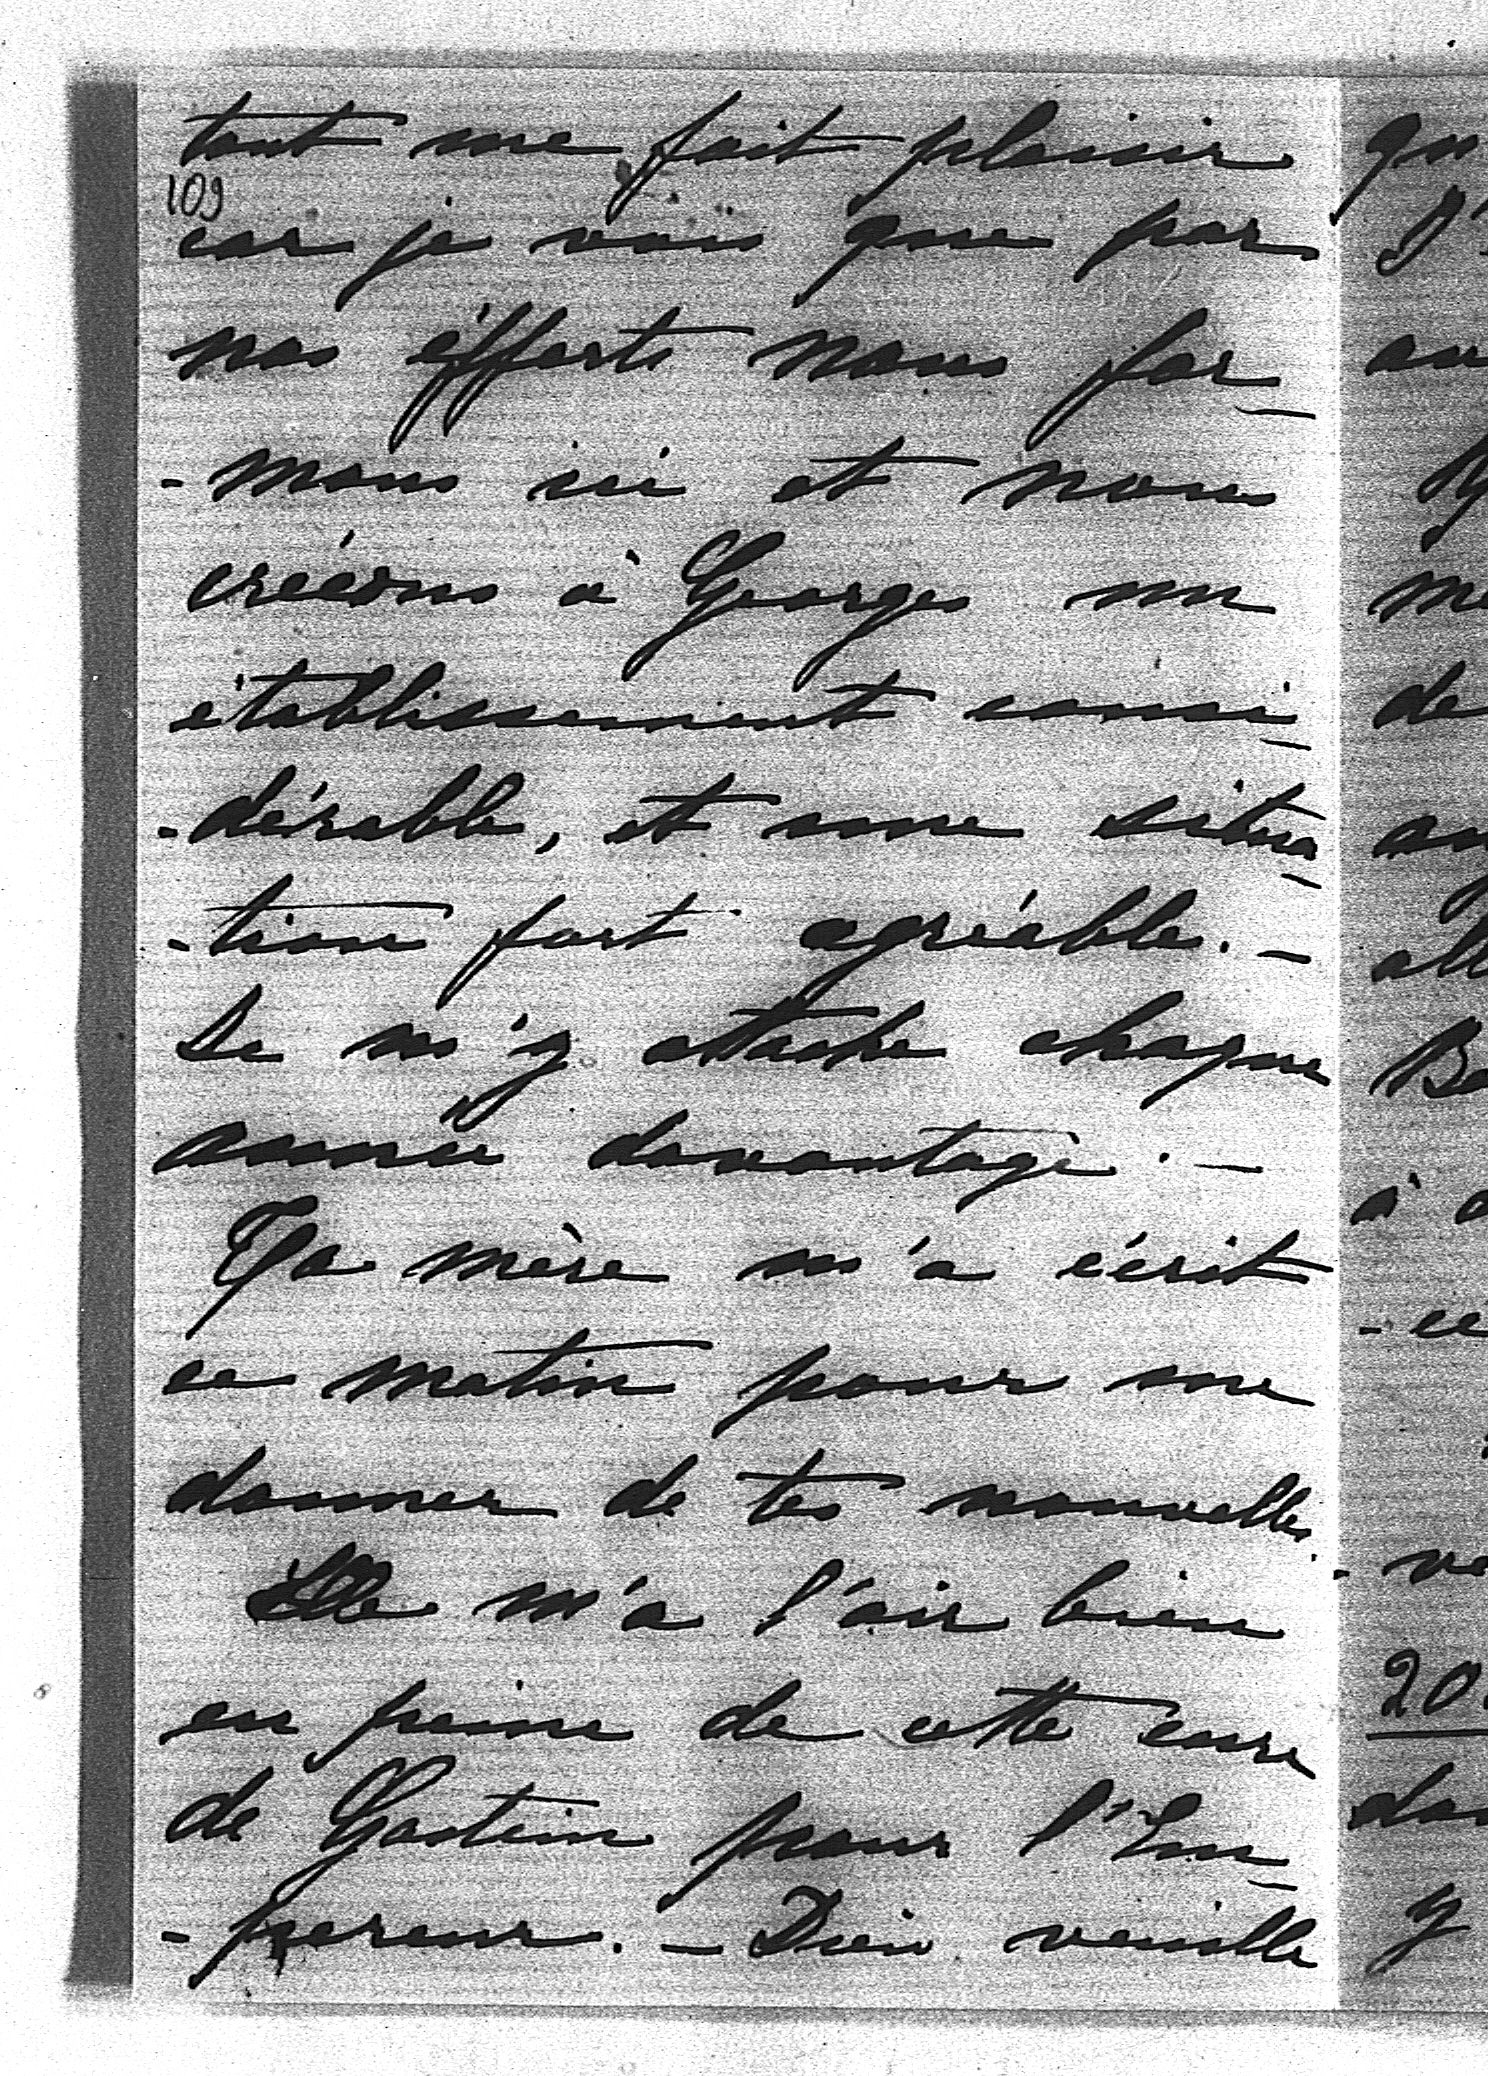 tout me fait plaisir
109
car je vois que par
nos éfforts nous for_
-mons ici et nous
créeons à Georges un
établissement consi_
-dérable, et une situa_
-tion fort agréable. _
Je m'y attache chaque
année davantage. _
Ta mère m'a écrit
ce matin pour me
donner de tes nouvelles.
Elle m'a l'air bien
en peine de cette cure
de Gastein pour l'Em_
-pereur. _ Dieu veuille
qu
au
me
de
all
Be
à
- ce
- ve
20
y